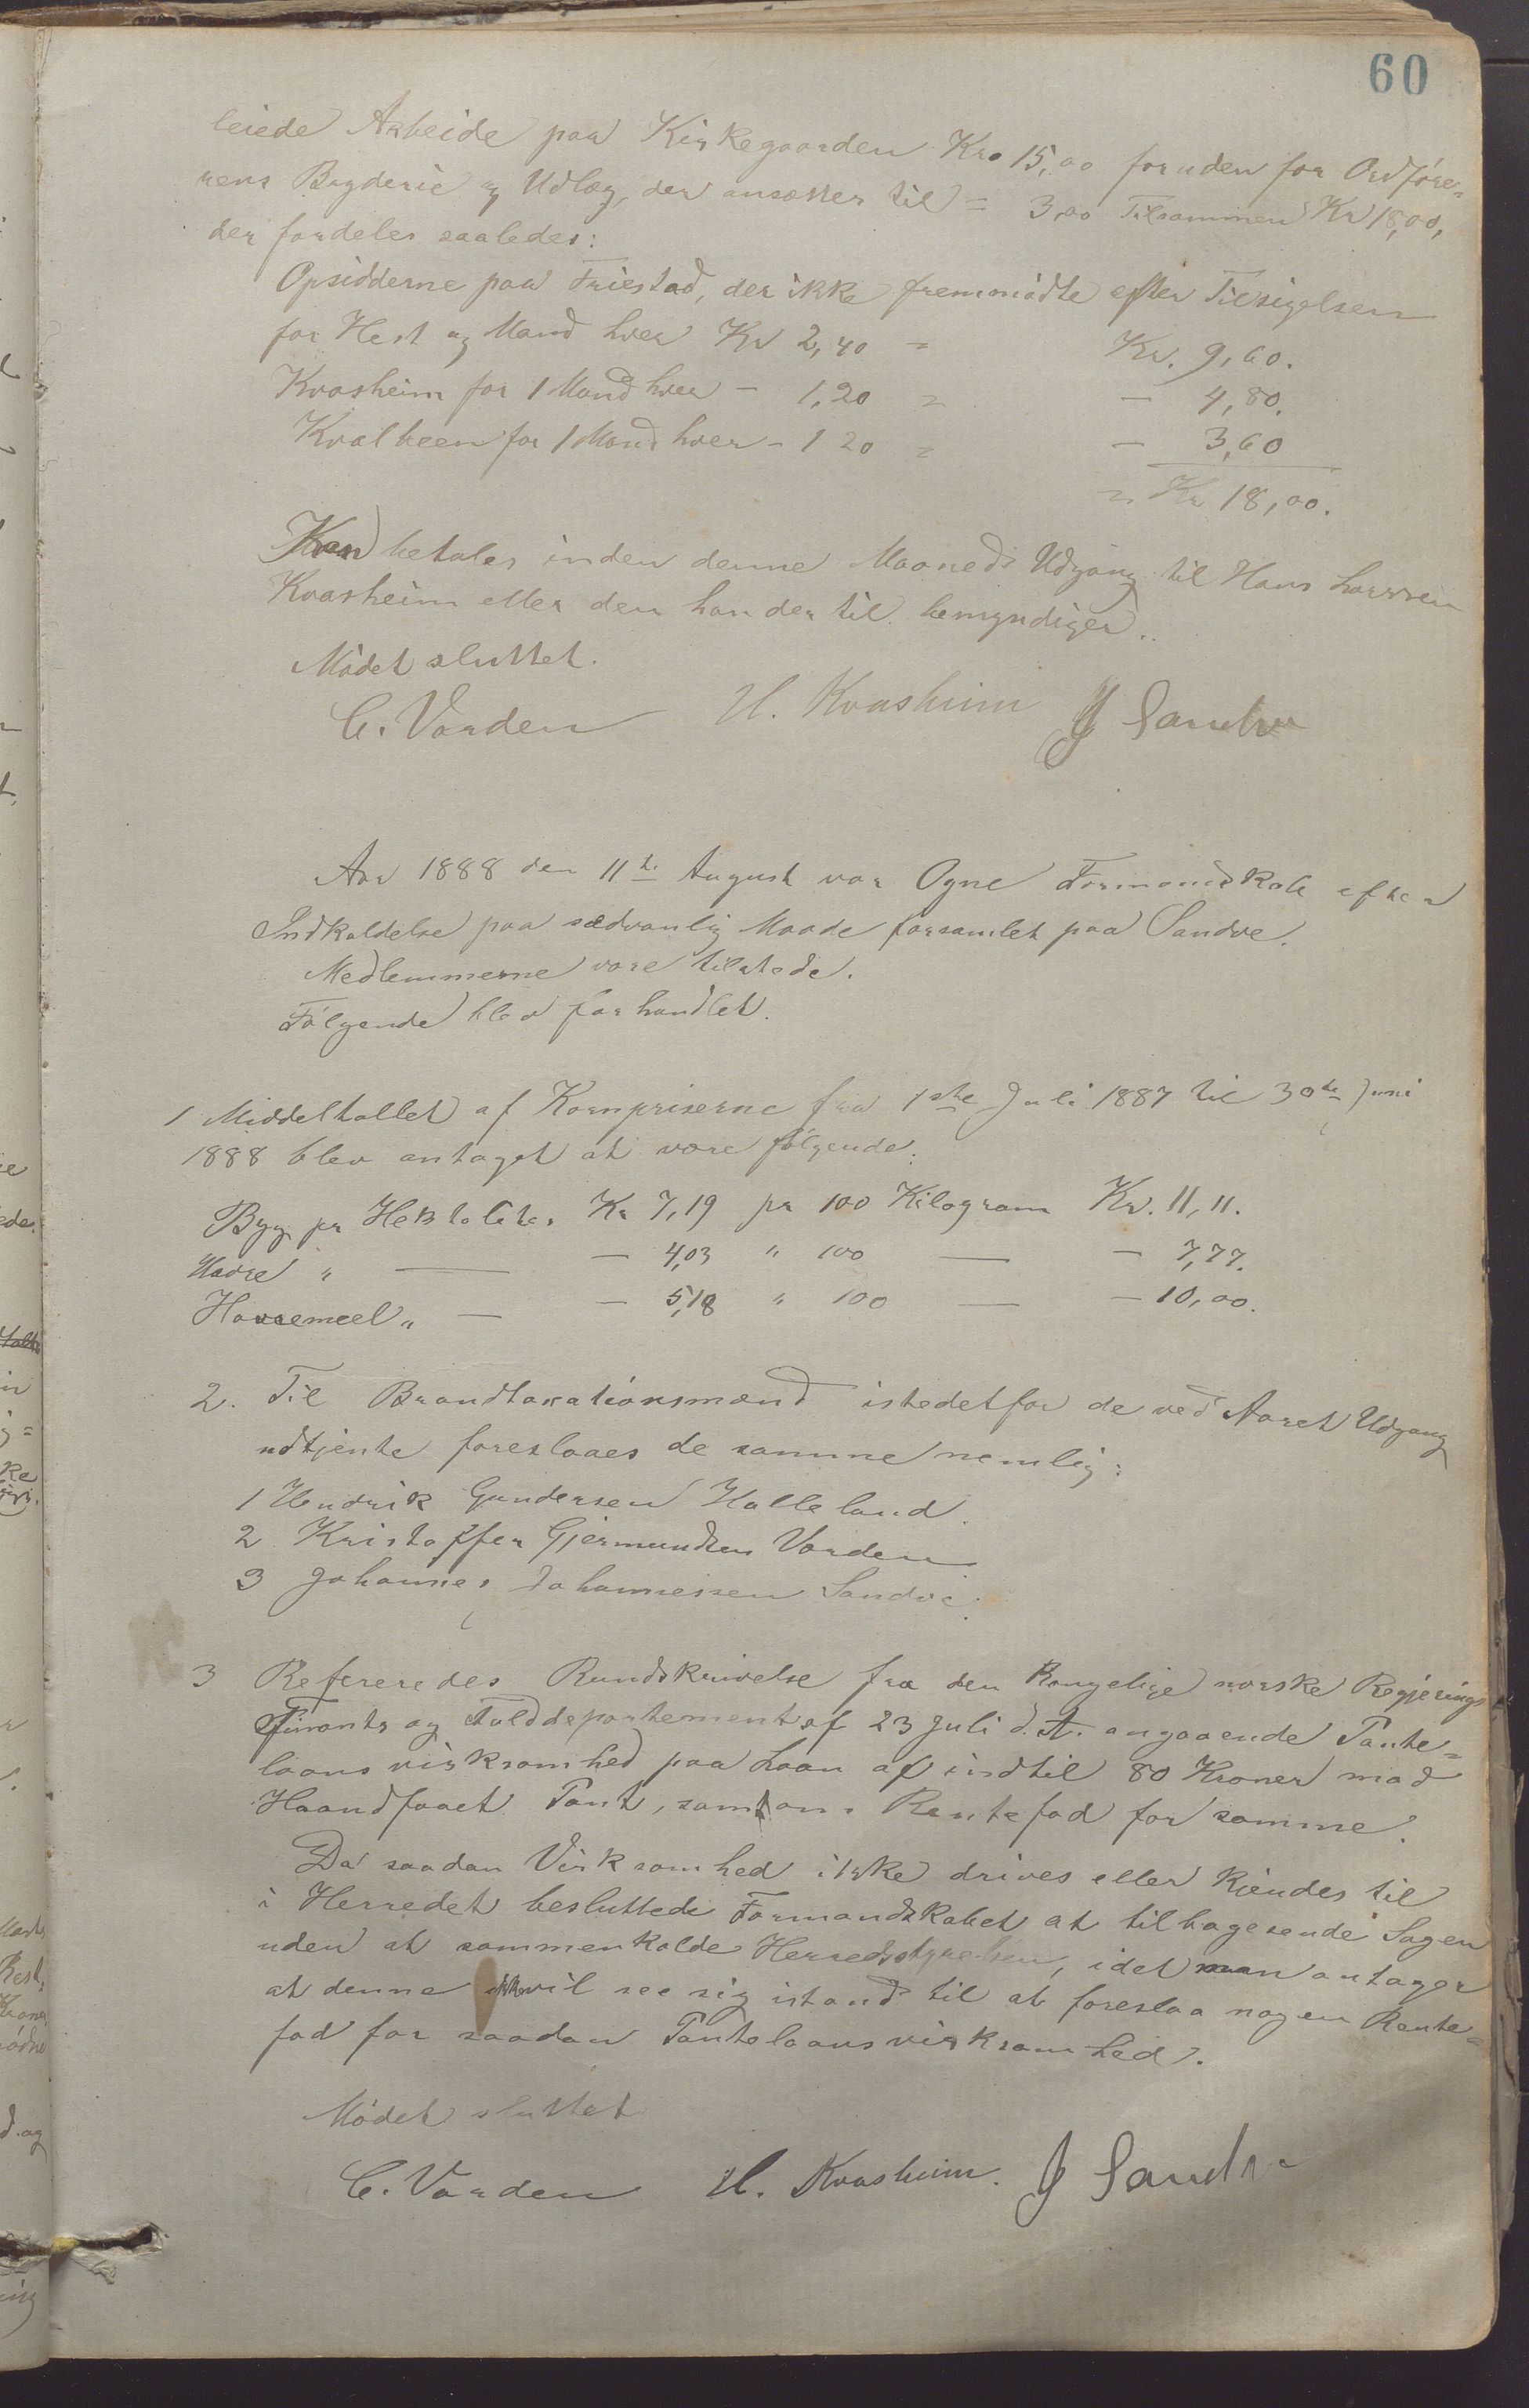 60
leiede Arbeide paa Kirkegaarden Kro 15,00 foruden for Ordføre-
rens Bryderie og Udlæg, der ansættes til = 3,00 Tilsammen Kr 18,00,
der fordeles saaledes:
Opsidderne paa Friestad, der ikke fremmødte efter Tilsigelsen
for Hest og Mand hver Kr 2,40 = Kr. 9,60.
Kvasheim for 1 Mand hver - 1,20 = - 4,80.
Kvalbeen for 1 Mand hver - 1 20 = - 3,60
= Kr 18,00.
betales inden denne Maaneds Udgang til Hans Larssen
Kvasheim eller den han der til bemyndiger..
Mødet sluttet.
C. Varden H. Kvasheim J Sandve
Aar 1888 den 11te August var Ogne Formandskab efter
Indkaldelse paa sædvanlig Maade forsamlet paa Sandve.
Medlemmerne vare tilstede.
Følgende blev forhandlet.
1 Middeltallet af Kornpriserne fra 1ste Juli 1887 til 30te Juni
1888 blev antaget at være følgende:
Byg pr Hektoliter Kr 7,19 pr 100 Kilogram Kr. 11,11.
Havre " — - 4,03 " 100 — - 7,77.
Havremeel " — - 5,18 " 100 — - 10,00.
2. Til Brandtaxationsmænd istedetfor de ved Aaret Udgang
udtjente foreslaaes de samme nemlig:
1 Hendrik Gundersen Halleland.
2 Kristoffer Gjermundsen Varden
3 Johannes Johannessen Sandve.
3 Refereredes Rundskrivelse fra den Kongelige norske Regjerings
Finants og Tolddepartement af 23 Juli d. A. angaaende Pante-
laans virksomhed paa Laan af indtil 80 Kroner mod
Haandfaaet Pant, samt om Rentefod for samme.
Da saadan Virksomhed ikke drives eller kjendes til
i Herredet besluttede Formandskabet at tilbagesende Sagen
uden at sammenkalde Herredsstyrelsen, idet man antager
at denne ikke vil see sig istand til at foreslaa nogen Rente-
fod for saadan Pantelaansvirksomhed.
Mødet sluttet
C. Varden H. Kvasheim. J Sandve